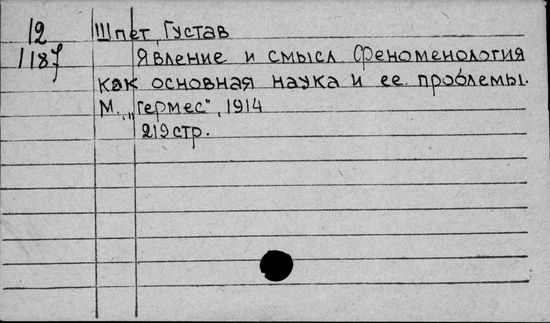 12 Шпет, Густав
1187 Явление и смысл. Феноменология
как основная наука и ее проблемы.
М., „Гермес", 1914
219 стр.